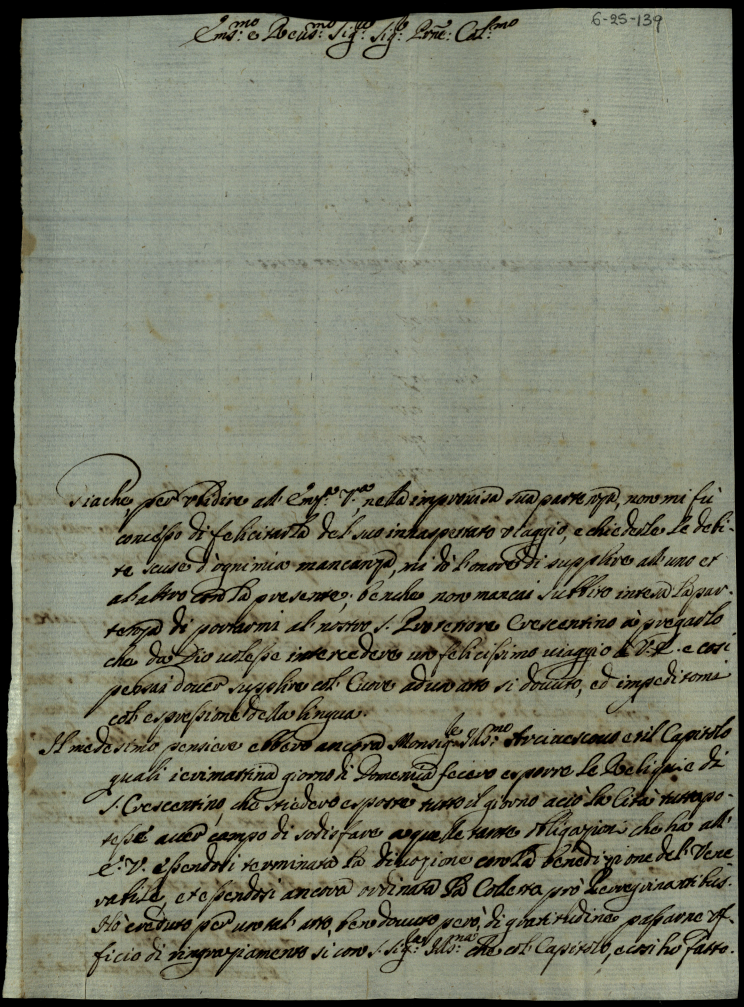 6-25-139
Em.mo e Reud.mo Sig.re Sig.r Prñe: Col.mo
Giache per vbidire all' Em.za V.a, nella improuisa sua partenza, non mi fù
concesso di felicitarla del suo innaspettato viaggio, e chiederle le debi-
te scuse d'ogni mia mancanza, mi dò l'onore di supplire all' uno et
all' altro con la presente; benche non mancai subbito intesa la par-
tenza di portarmi al nostro S. Protettore Crescentino à pregarlo
che da Dio uolesse intercedere un felicissimo viaggio à V. E. e così
pensai douer supplire col Cuore ad un atto si douuto, ed impeditomi
coll' espressione della lingua.
Il medesimo pensiere ebbero ancora Monsig.re Ill.mo Arciuescouo e il Capitolo
quali ierimattina giorno di Domenica fecero esporre le Reliquie di
S. Crescentino, che stiedero esposte tutto il giorno acciò la Città tutta po-
tesse auer campo di sodisfare a quelle tante obligazioni che ha all'
E. V. essendosi terminata la diuozione con la benedizione del Vene
rabile, et essendosi ancora ordinata la Colletta prò Peregrinantibus.
Hò creduto per un tal atto, ben douuto però, di gratitudine passarne vf-
ficio di ringraziamento si con S. Sig.ria Ill.ma che col Capitolo, e così ho fatto.